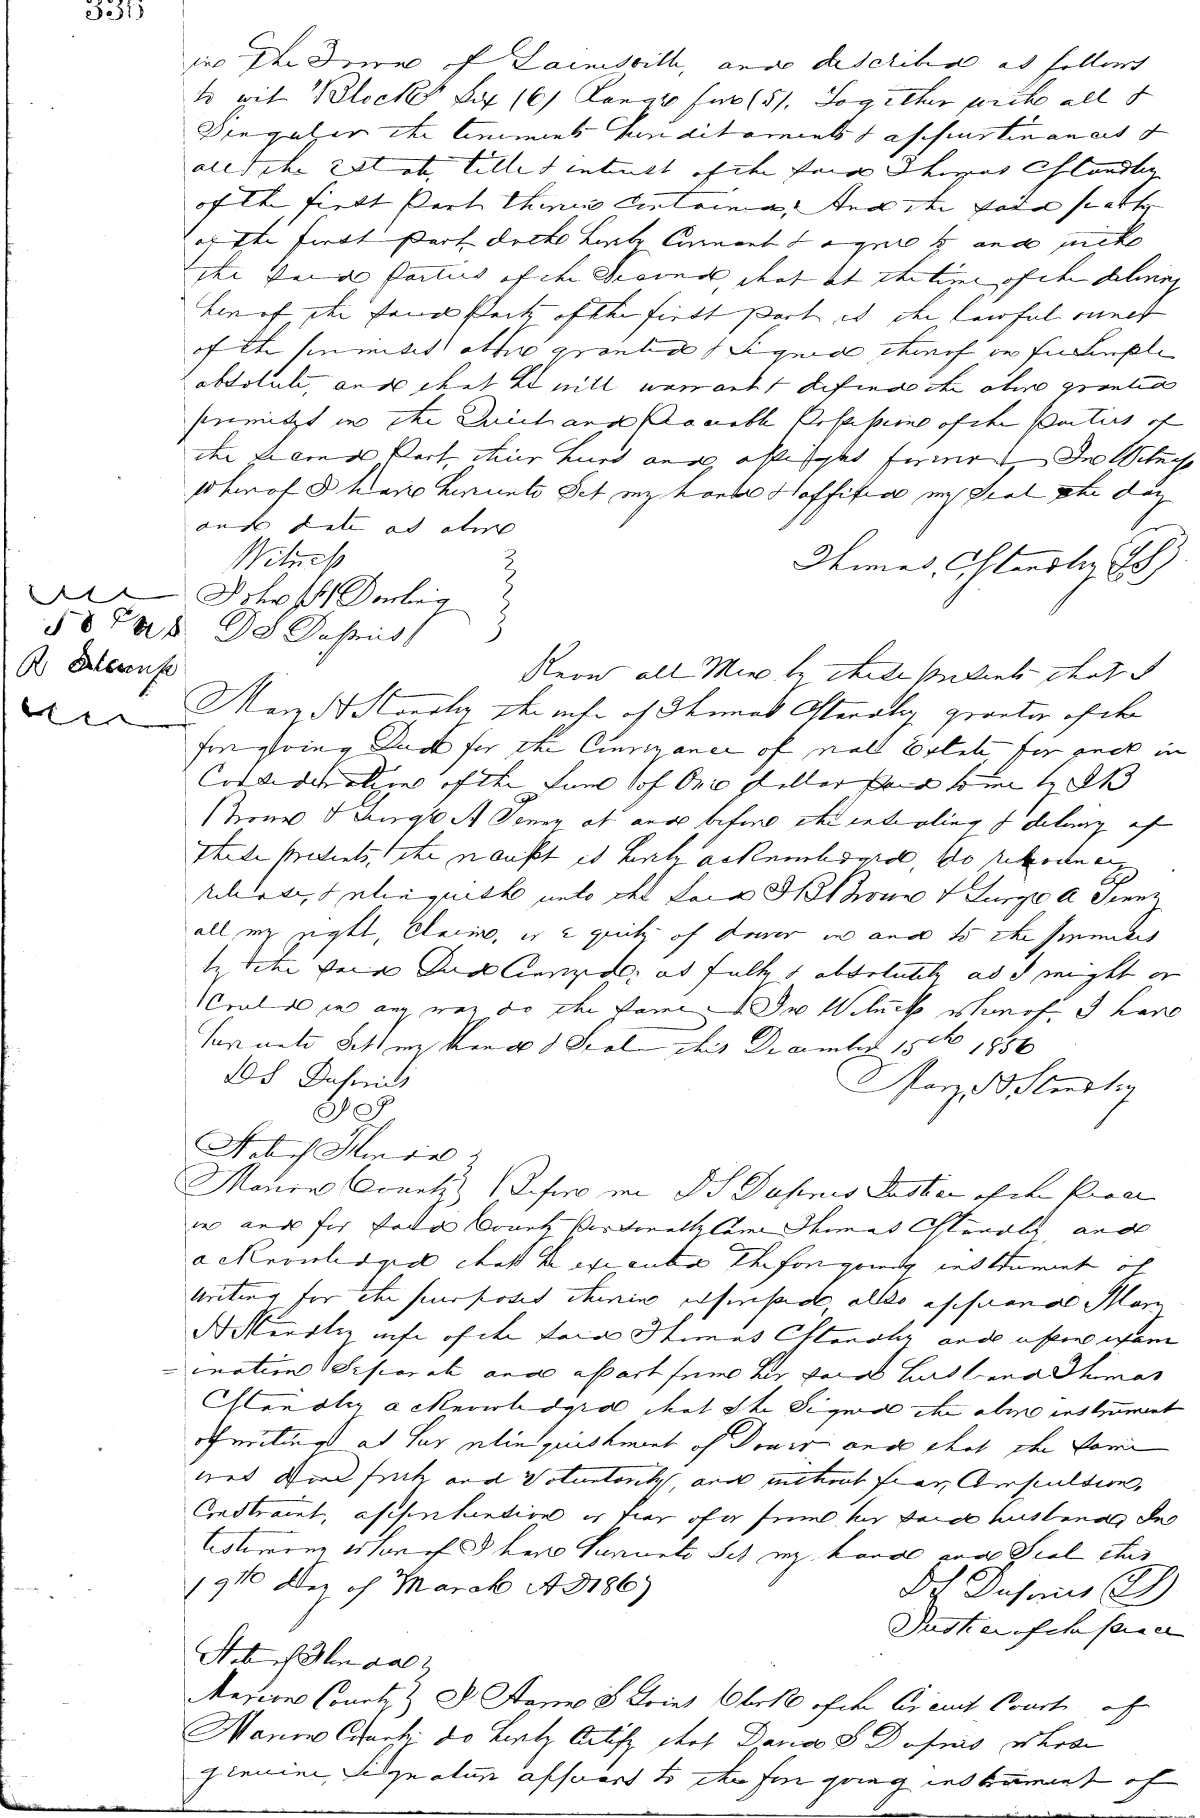 336
in the Town of Gainesville, and described as follows
to wit "Block" Six (6) Range five (5). Together with all &
Singular the tenements hereditaments & appurtinances &
all the Estate, title & intrust of the said Thomas C Standley
of the first Part therein Contained, And the said party
of the first Part, doth hereby Covenant & agree to and with
the said Parties of the Second, that at the time of the delivery
hereof the said Party of the first part is the lawful owner
of the premises above granted & Signed thereof in fee Simple
absolute, and that he will warrant & defend the above granted
premises in the Quiet and Peaceable Possession of the Parties of
the second Part, their heirs and assigns forever In Witness
whereof I have hereunto Set my hand & affixed my Seal the day
and date as above
Witness
Thomas, C Standley (LS)
John H Dowling
50
D S Dupries
R
Know all Men by these presents that I
Mary A Standley the wife of Thomas C Standley grantor of the
foregoing Deed for the Conveyance of real Estate, for and in
Consideration of the Sum of One dollar paid to me by
Brown & George A Penny at and before the ensealing & delivery of
these presents, the receipt is hereby acknowledged, do renounce
release, & relinquish unto the said Brown & George A Penny
all my right, Claim, or equity of dower in and to the premises
by the said Deed Conveyed, as fully & absolutely as I might or
Could in any way do the same In Witness whereof, I have
hereunto Set my hand & Seal this December 15th 1856
D S Dupries
Mary, A, Standley
J P
State of Florida
Marion County Before me D S Dupries Justice of the Peace
in and for said County Personally Came Thomas C Standley and
acknowledged that he executed the foregoing instrument of
writing for the purposes therein expressed, also appeared Mary
A Standley wife of the said Thomas C Standley and upon exam
=ination Separate and apart from her said husband Thomas
C Standley acknowledged that She Signed the above instrument
of writing as her relinquishment of Dower and that the same
was done freely and Voluntarily, and without fear, Compulsion,
Constraint, apprehension or fear of or from her said husband In
testimony whereof I have hereunto Set my hand and Seal this
19th day of March AD 1857
D S Dupries (LS)
Justice of the peace
State of Florida
Marion County I Clerk of the Circuit Court of
Marion County do hereby Certify that David S Dupries whose
genuine, Signature appears to the fore going instrument of